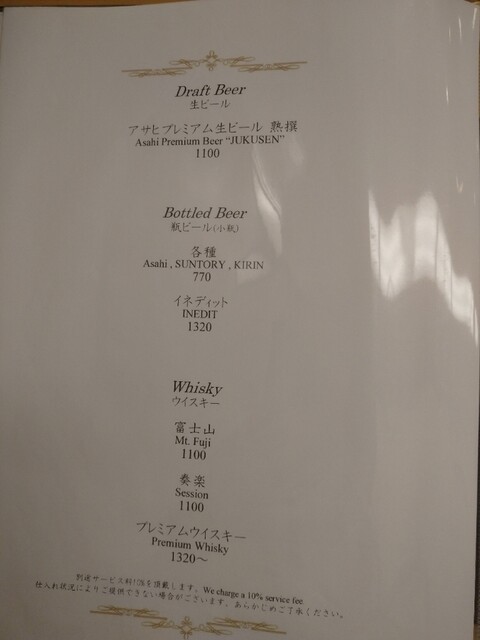 Draft Beer
生ビール
アサヒプレミアム生ビール 熟撰
Asahi Premium Beer “JUKUSEN”
1100
Bottled Beer
瓶ビール(小瓶)
各種
Asahi , SUNTORY , KIRIN
770
イネディット
INEDIT
1320
Whisky
ウイスキー
富士山
Mt. Fuji
1100
奏楽
Session
1100
プレミアムウイスキー
Premium Whisky
1320～
別途サービス料10%を頂戴します。We charge a 10% service fee
仕入れ状況によりご提供できない場合がございます。あらかじめご了承ください。